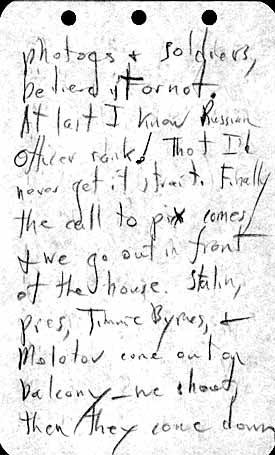 photogs & soldiers,
believe it or not.
At last I know Russian
Officer rank! Thot I'd
never get it strait. Finally
the call to pix comes,
& we go out in front
of the house. Stalin,
pres, Jimmie Byrnes, &
Molotov come out on
balcony – we shoot,
then they come down